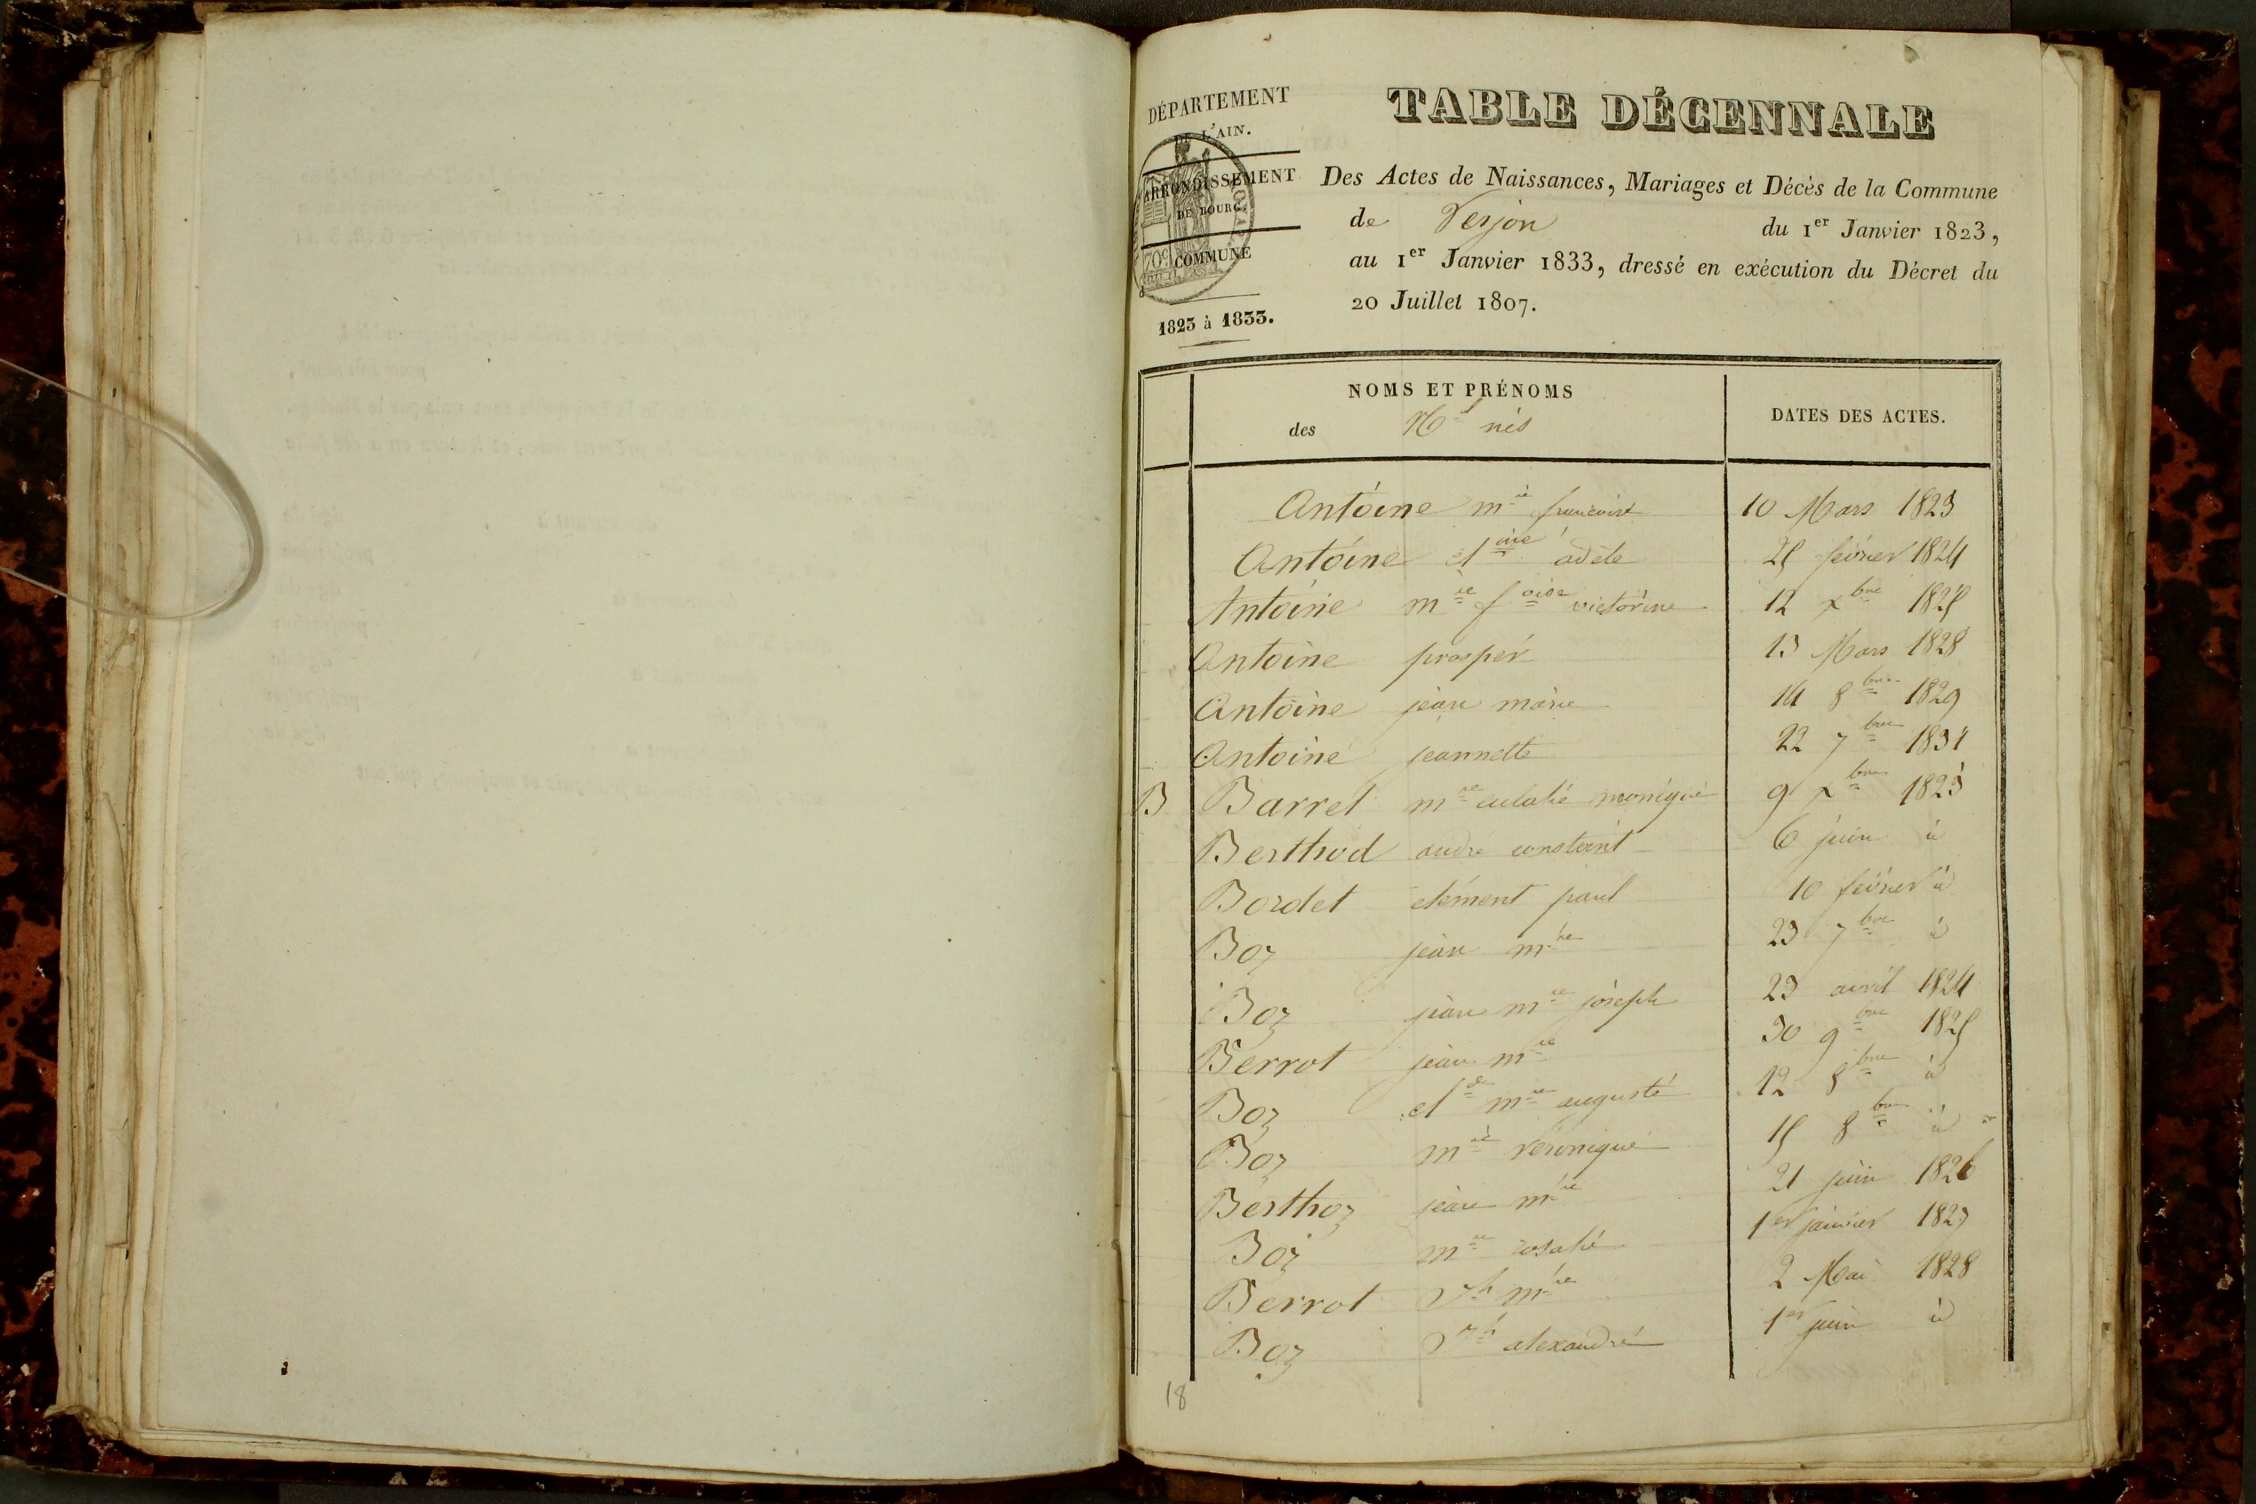 DÉPARTEMENT
DE L'AIN.
ARRONDISSEMENT
DE BOURG.
COMMUNE
d
1823 à 1833.
TABLE DÉCENNALE
Des Actes de Naissances, Mariages et Décès de la Commune
de Verjon du 1er Janvier 1823,
au 1er Janvier 1833, dressé en exécution du Décret du
20 Juillet 1807.
NOMS ET PRÉNOMS
des nés
DATES DES ACTES.
Antoine mie francoise 10 Mars 1823
Antoine adele 25 février 1824
Antoine mie foise victorine 12 xbre 1825
Antoine prosper 13 Mars 1828
Antoine jean marie 14 8bre 1829
Antoine jeannette 22 7bre 1831
B Barret mie eulalie monique 9 xbre 1823
Berthod andre constant 6 juin id
Bordet clément paul 10 février id
Boz jean mie 23 7bre id
Boz jean mie joseph 23 avril 1824
Berrot jean mie 30 9bre 1825
Boz cl de mie auguste 12 8bre id
Boz mie veronique 15 8bre id
Berthoz jean mie 21 juin 1826
Boz mie rosalie 1er janvier 1827
Berrot jh mie 2 Mai 1828
Boz alexandre 1er juin id
18